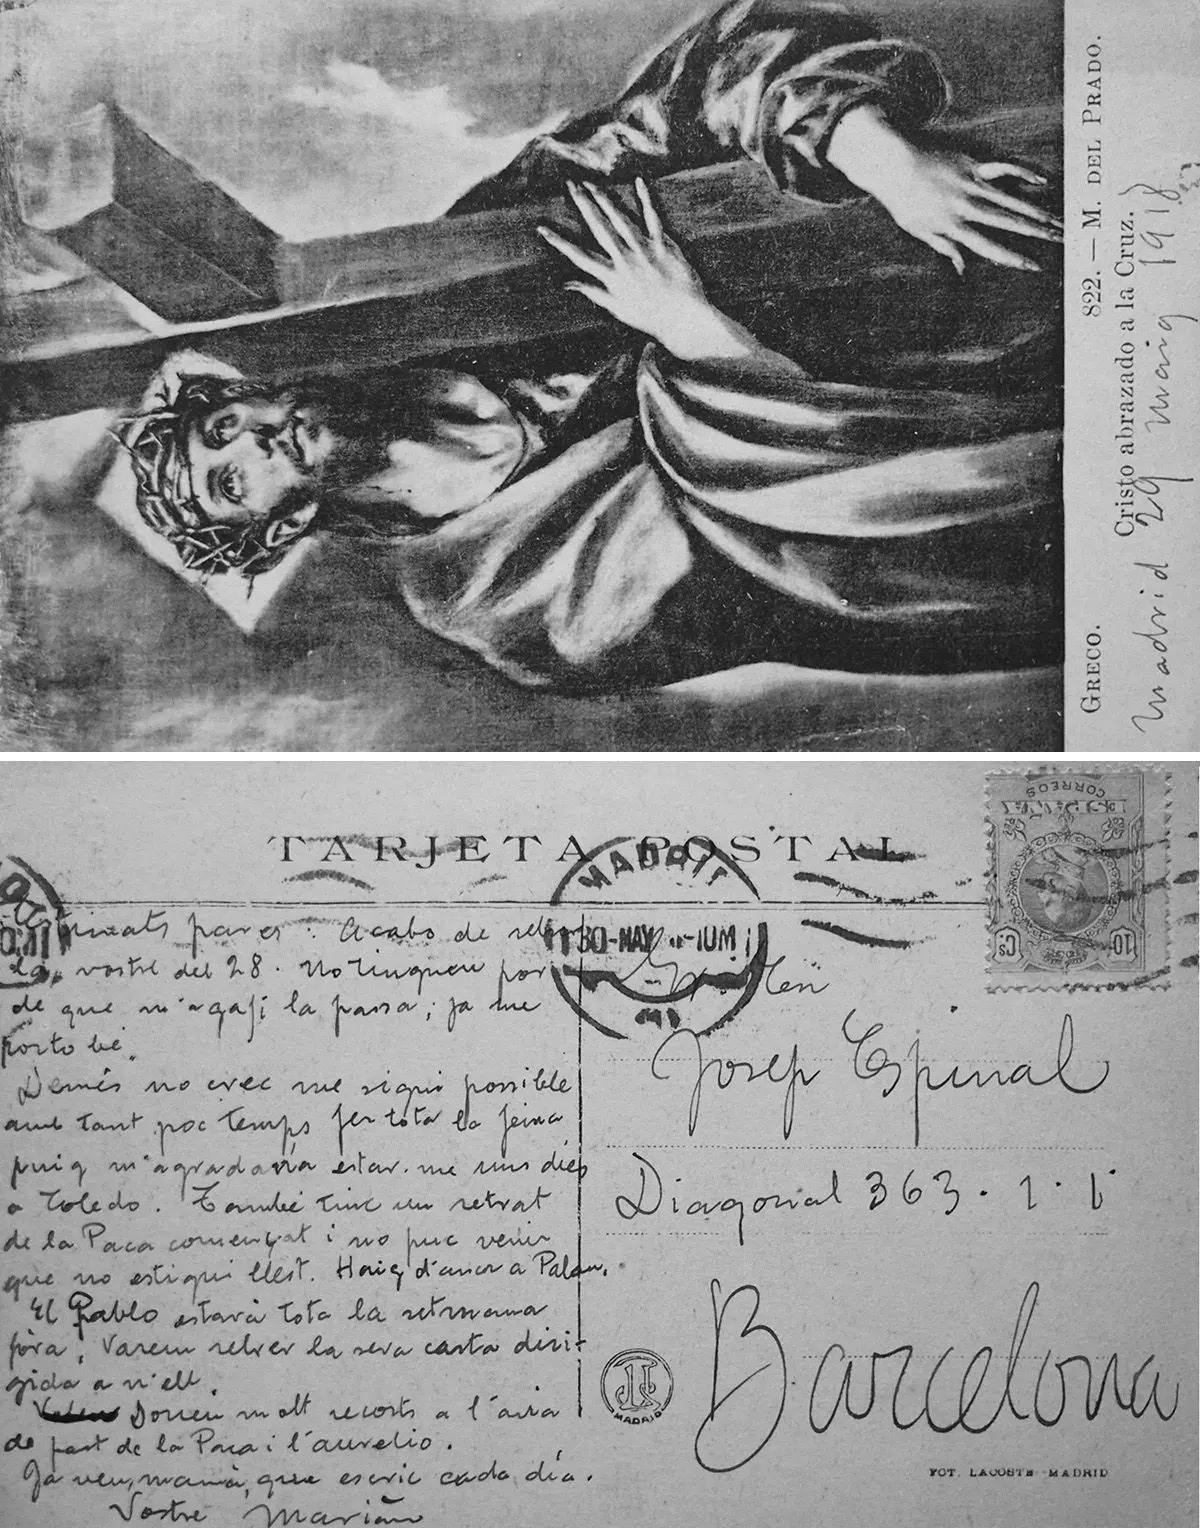 GRECO. 822.—M. DEL PRADO.
Cristo abrazado a la Cruz.
Madrid 29 maig 1918
TARJETA POSTAL
CORREOS
10 Cs
MADRID
30-MAY 1UM
MADRID
Estimats pares: Acabo de rebre
la vostre del 28. No tingueu por
de que m'agafi la passa; ja me
porto bé.
Demés no crec me sigui possible
amb tant poc temps fer tota la feina
puig m'agradaria estar-me uns dies
a Toledo. També tinc un retrat
de la Paca començat i no puc venir
que no estigui llest. Haig d'anar a Palau.
El Pablo estarà tota la setmana
fòra. Varem rebrer la seva carta diri-
gida a n'ell.
Doneu molt recorts a l'avia
de part de la Paca i l'aurelio.
Ja veu, mamà, que escric cada día.
Vostre Marián
Josep Espinal
Diagonal 363-1-1
Barcelona
MADRID
FOT. LACOSTE-MADRID